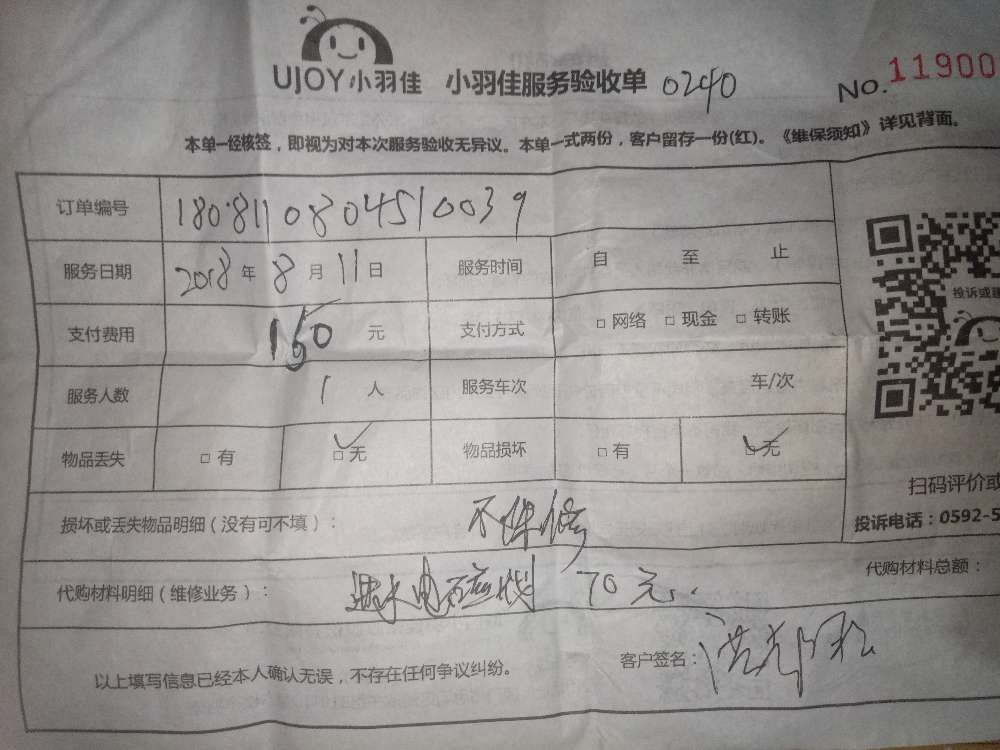 UJOY小羽佳 小羽佳服务验收单 0240 No.11900
本单一经核签，即视为对本次服务验收无异议。本单一式两份，客户留存一份(红)。《维保须知》详见背面。
订单编号 180811080451 0039
服务日期 2018年 8月 11日 服务时间 自 至 止
投诉或
支付费用 150 元 支付方式 □网络 □现金 □转账
服务人数 1 人 服务车次 车/次
物品丢失 □有 □无 物品损坏 □有 □无
扫码评价或
损坏或丢失物品明细（没有可不填）： 不保修
投诉电话：0592-5
代购材料明细（维修业务）： 进水电磁 70元 代购材料总额：
以上填写信息已经本人确认无误，不存在任何争议纠纷。 客户签名：